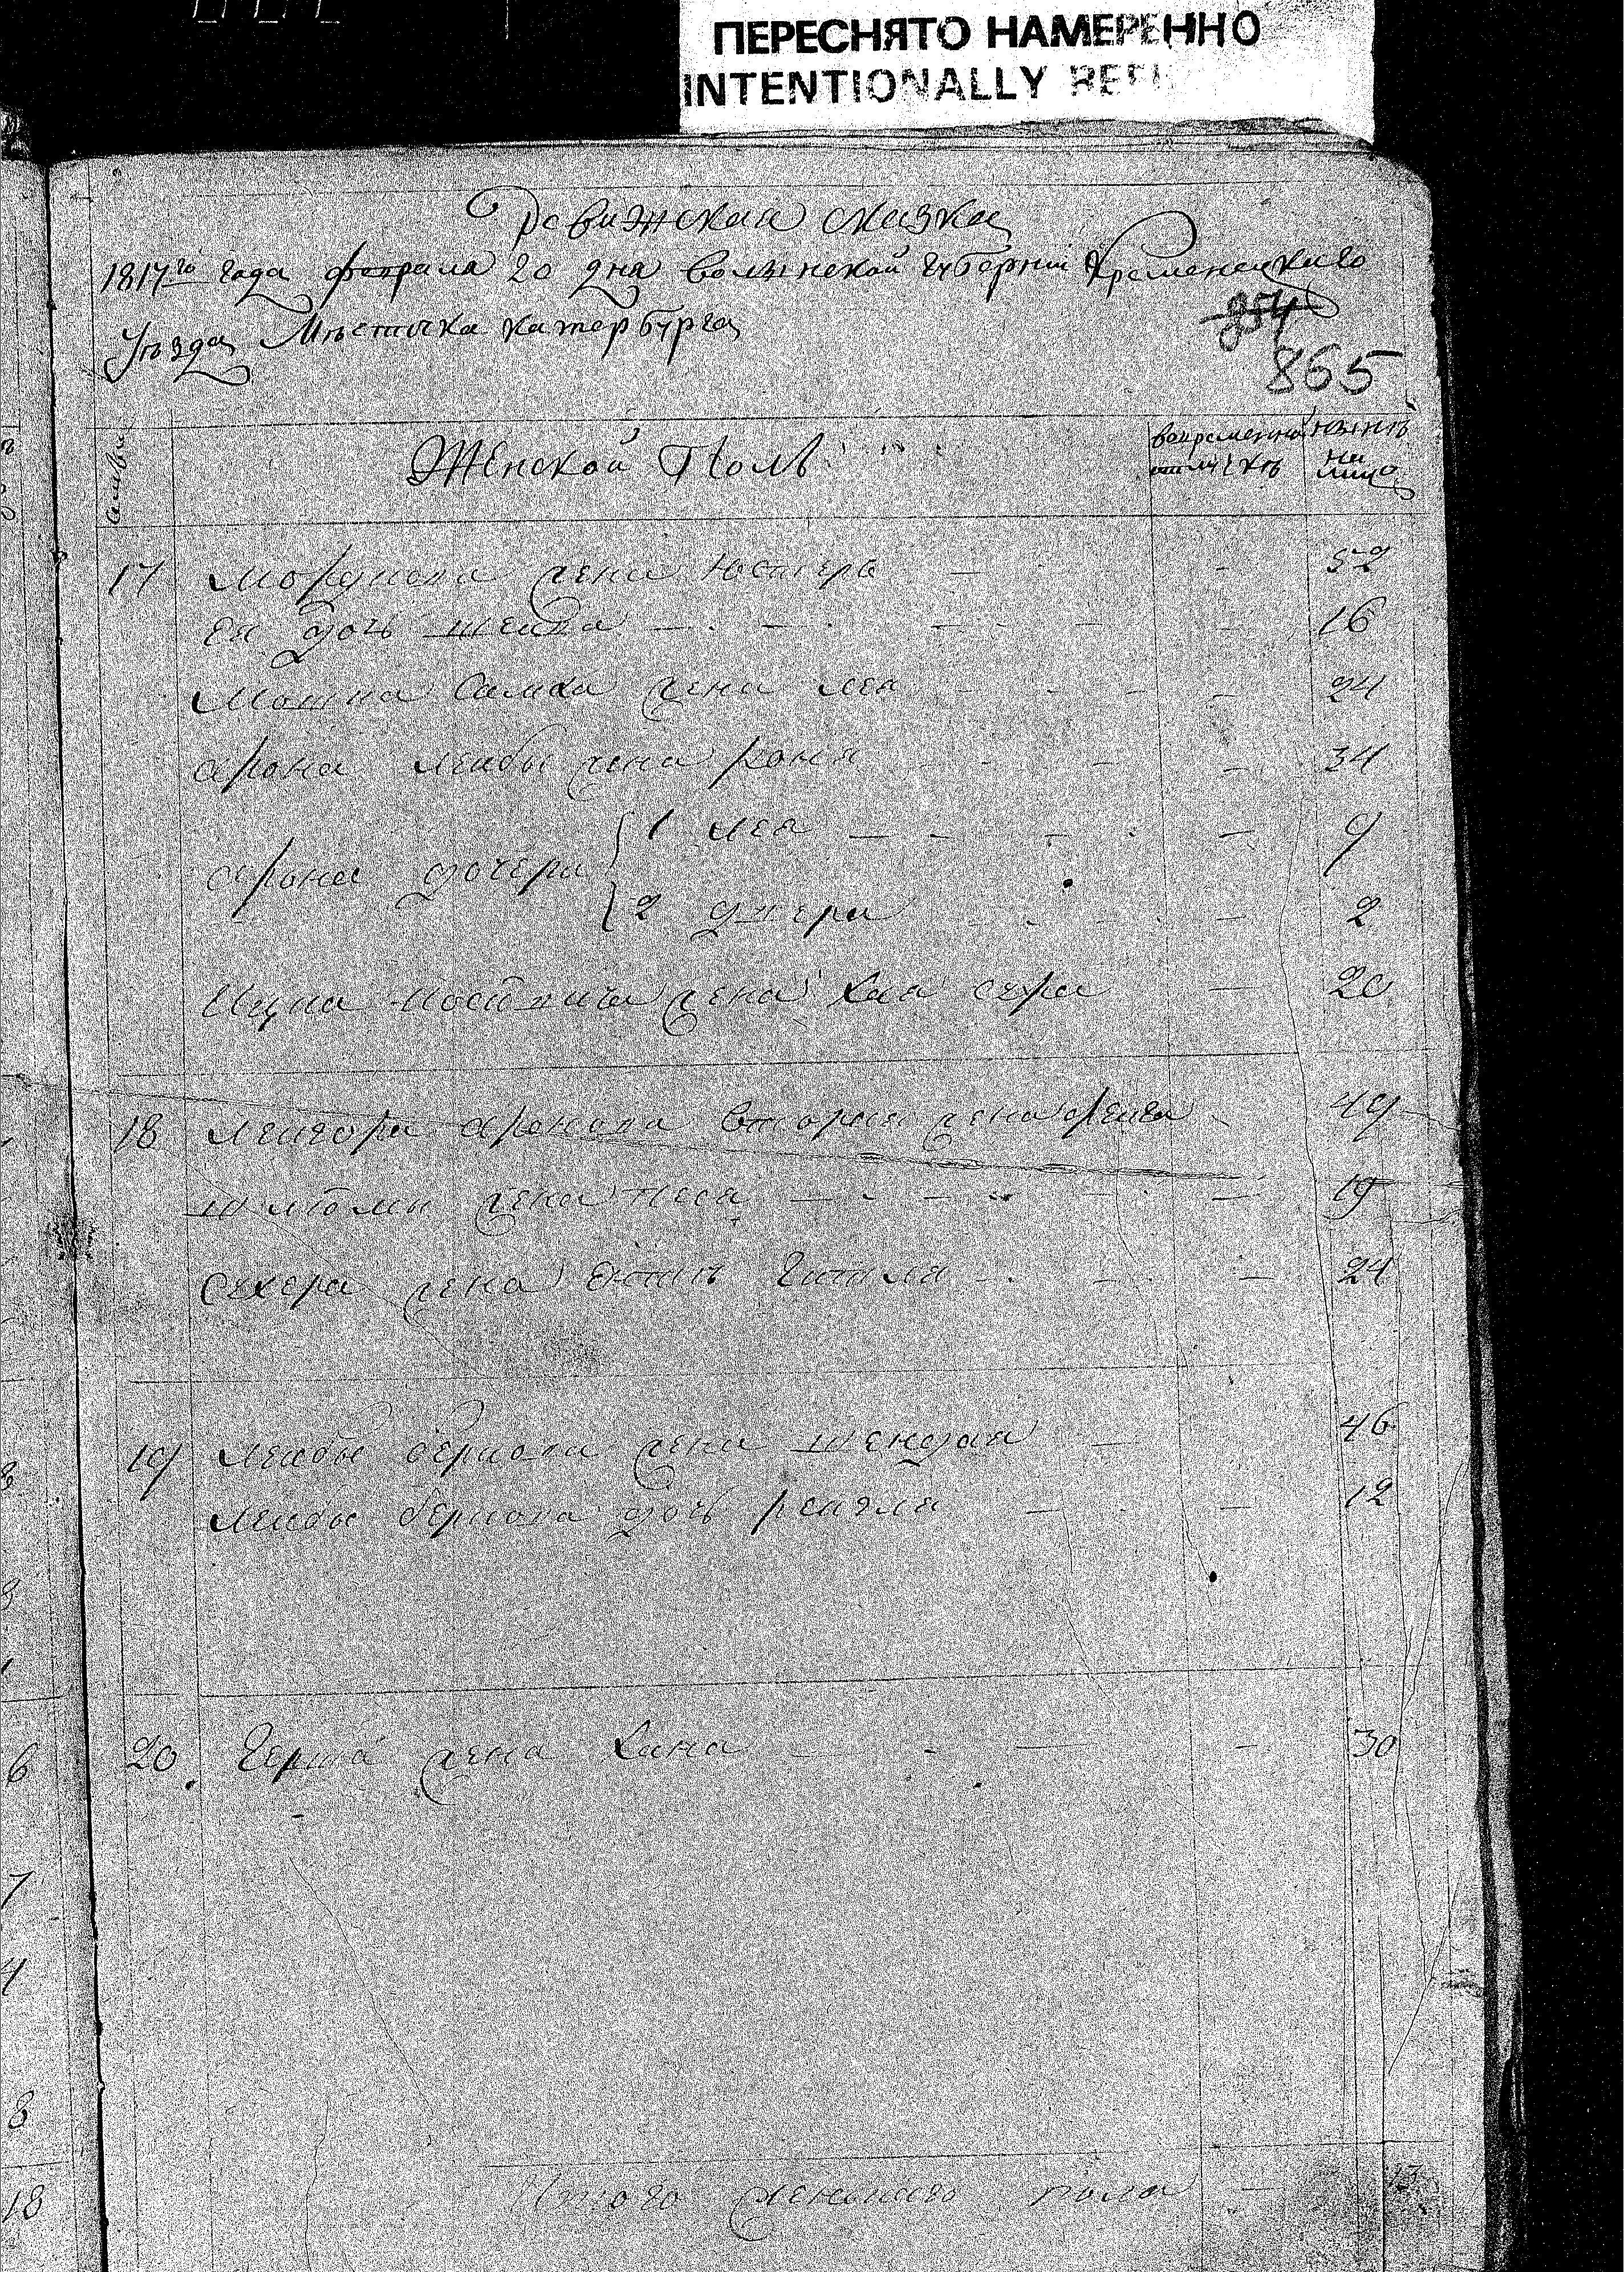 ПЕРЕСНЯТО НАМЕРЕННО
INTENTIONALLY REFI
Ревижская сказка
1817го года февраля 20 дня волынской губернии Кременецкаго
Уѣзда Мѣстечка катербурга
854
865
Женской Полъ
нынѣ на лицо
17 Мордкова жена Юстера — 52
Ея дочь шейва — 16
Мошка жена лея — 24
арона лейбы жена роня — 34
арона дочери
1 лея — 9
2 двера — 2
Ицка жена хая сура — 20
18 аронова вторая жена фейга 49
жена песя — 19
Сухера жена гитля — 24
19 лейбы беркова жена шендля — 46
лейбы беркова дочь рейзля — 12
20 Герша жена хана — 30
Итого женскаго пола — 13